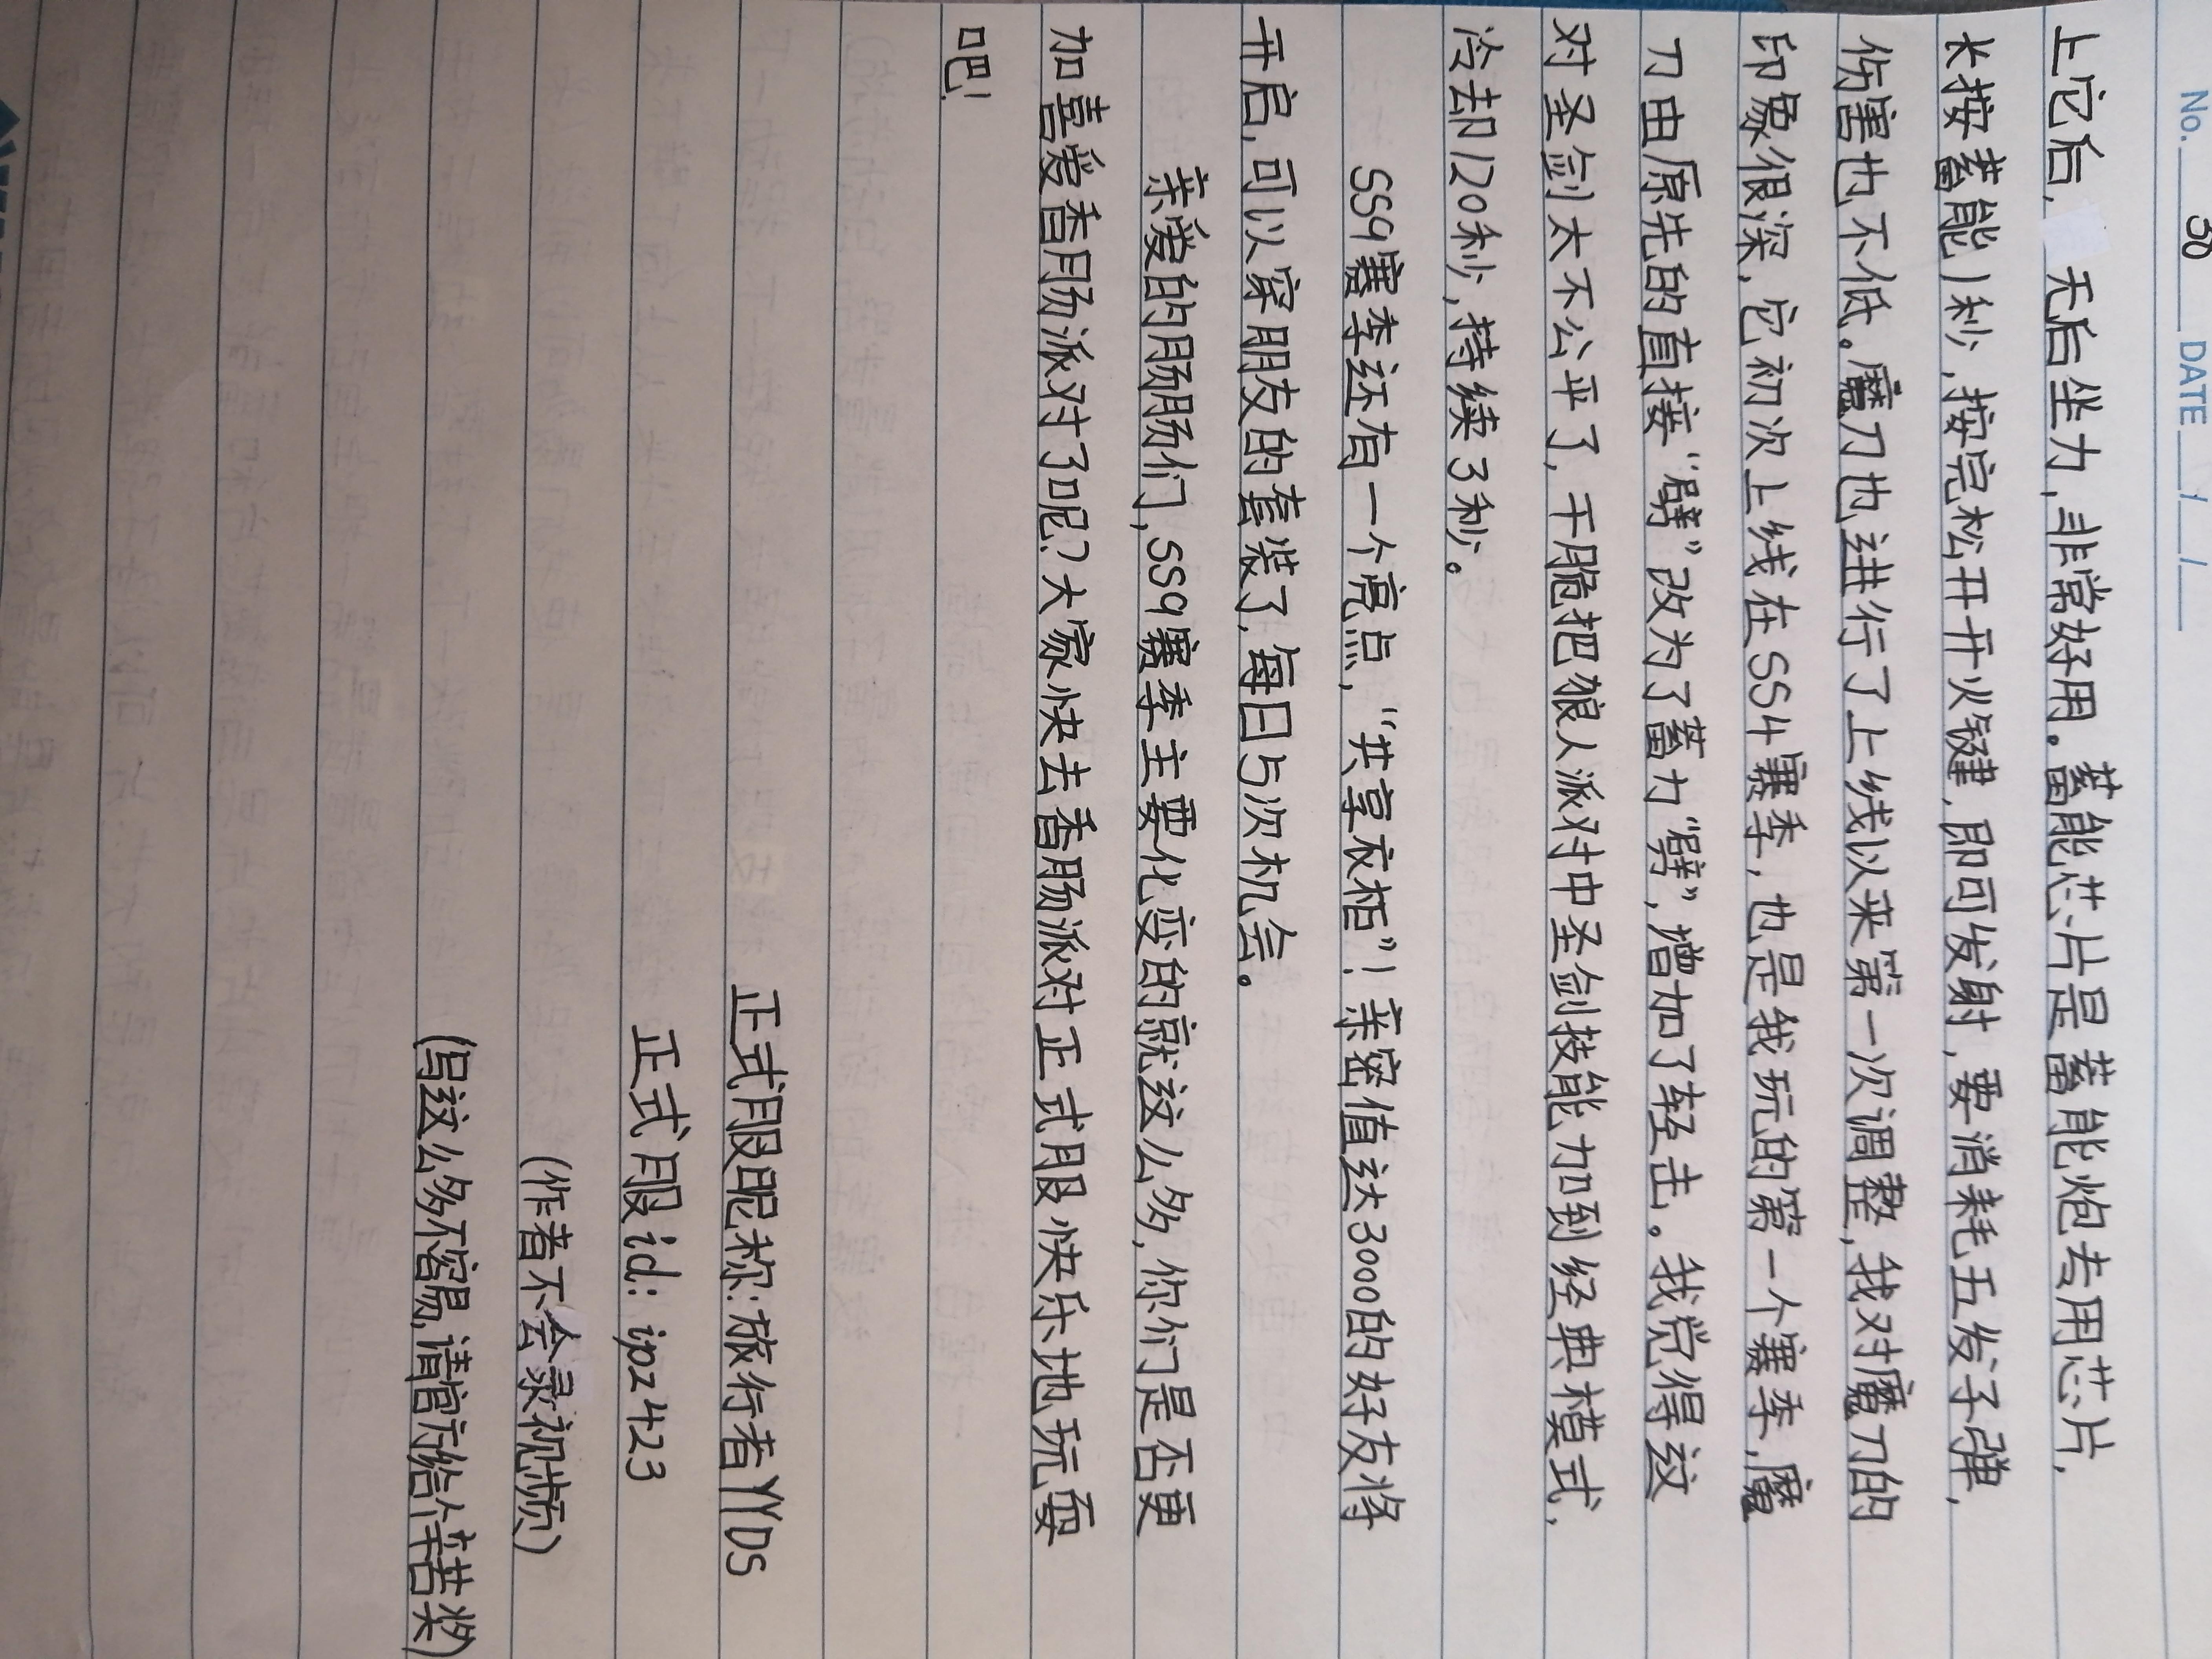 No. 30 DATE / /
上它后,无后坐力,非常好用。蓄能芯片是蓄能炮去用芯片,
长按蓄能1秒,按完松开开火键,即可发射,要消耗五发子弹,
伤害也不低。魔刀也进行了上线以来第一次调整,我对魔刀的
印象很深,它初次上线在SS4赛季,也是我玩的第一个赛季,魔
刀由原先的直接“劈”改为了蓄力“劈”,增加了轻击。我觉得这
对圣剑太不公平了,干脆把狼人派对中圣剑技能加到经典模式,
冷却120秒,持续3秒。
SS9赛季还有一个亮点,“共享衣柜”!亲密值达3000的好友将
开启,可以穿朋友的套装了,每日5次机会。
亲爱的肠肠们,SS9赛季主要化变的就这么多,你们是否更
加喜爱香肠派对了呢?大家快去香肠派对正式服快乐地玩耍
吧!
正式服昵称:旅行者YYDS
正式服id:ipz423
(作者不会录视频)
(写这么多不容易,请官方给个菩奖)